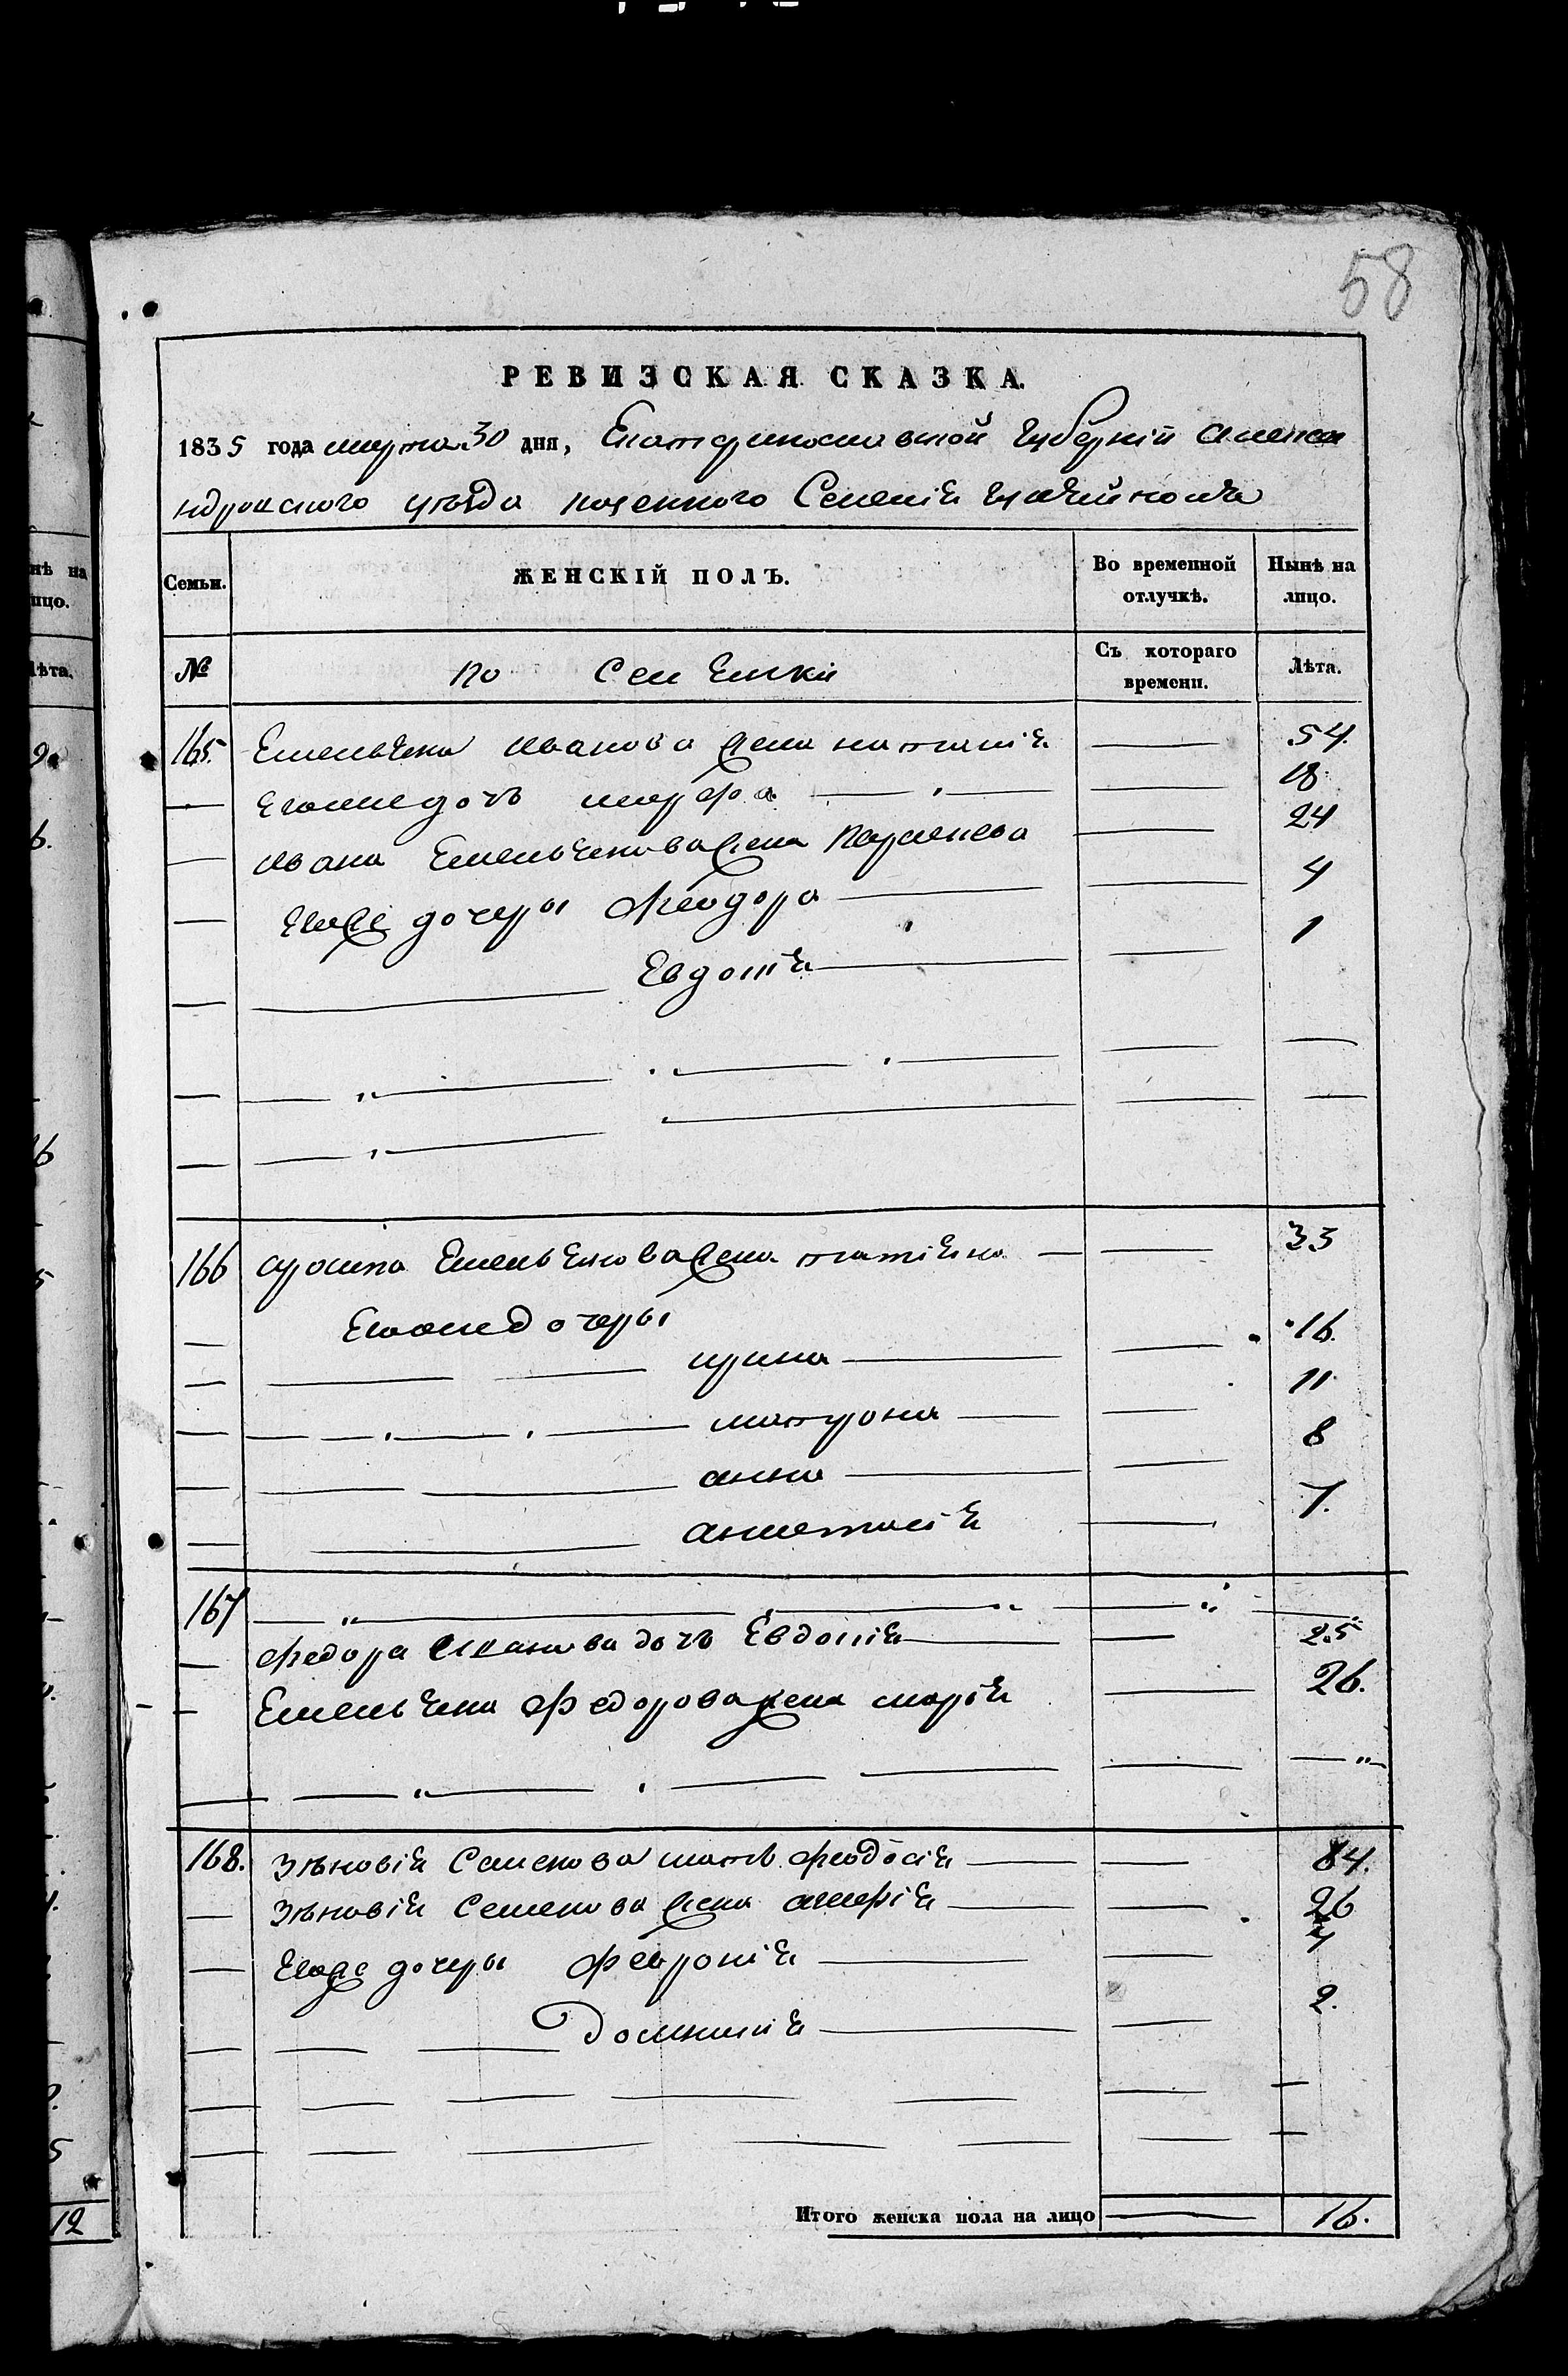 58
РЕВИЗСКАЯ СКАЗКА.
1835 года марта 30 дня, Екатеринославской Губернiи Алекса
ндровского уезда казенного Селенiя
Семьи. ЖЕНСКIЙ ПОЛЪ. Во временной отлучкѣ. Нынѣ на лицо.
№ Съ котораго времени. Лѣта.
165. Емельяна Иванова жена наталiя 54.
Его же дочь марфа 18.
Ивана Емельянова жена 24
Его же дочеры Феодора 4
Евдокiя 1
166 Емельянова жена татiяна 33
Его же дочеры
ирина 16.
матрона 11.
анна 8
анастасiя 7.
167
Федора Иванова дочь Евдокiя 25
Емельяна Федорова жена марiя 26.
168. Зѣновiя Семенова мать феодосiя 84.
Зѣновiя Семенова жена 26
Его же дочеры Феврониiя 4
Домникiя 2.
Итого женска пола на лицо 16.
нѣ на
лицо.
Лѣта.
12